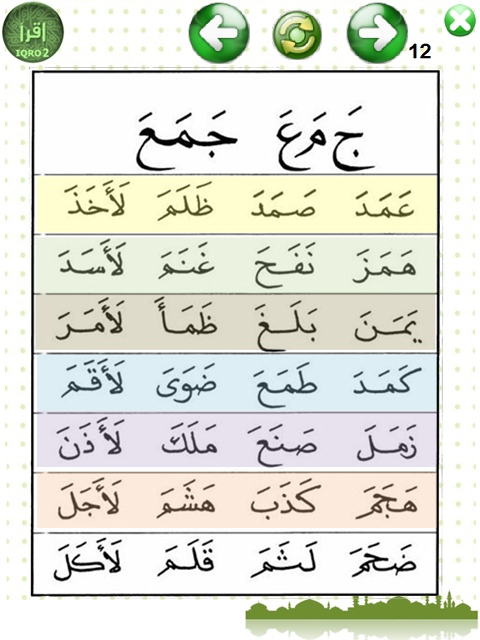 اقرأ
IQRO 2
12
جَ مَ عَ جَمَعَ
عَمَدَ صَمَدَ ظَلَمَ لَأَخَذَ
هَمَزَ نَفَحَ غَنَمَ لَأَسَدَ
يَمَنَ بَلَغَ ظَمَأَ لَأَمَرَ
كَمَدَ طَمَعَ ضَوَىَ لَأَقَمَ
زَمَلَ صَنَعَ مَلَكَ لَأَذَنَ
هَجَمَ كَذَبَ هَشَمَ لَأَجَلَ
ضَخَمَ لَثَمَ قَلَمَ لَأَكَلَ